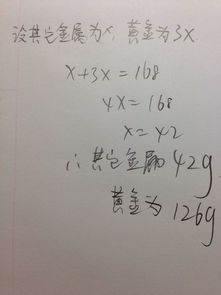 设其它金属为x,黄金为3x
x+3x=168
4x=168
x=42
∴其它金属42g
黄金为126g